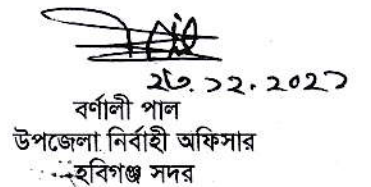 ২৩.১২.২০২১
বর্ণালী পাল
উপজেলা নির্বাহী অফিসার
হবিগঞ্জ সদর